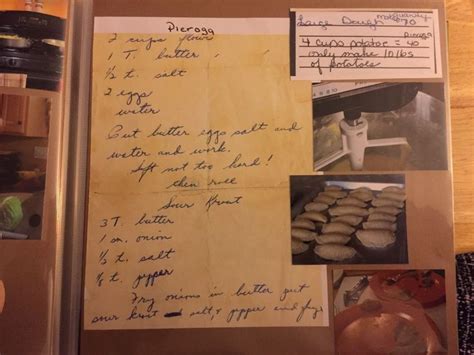 Pierogg
2 cups flour
1 T. butter
½ t. salt
2 eggs
water
Cut butter eggs salt and
water and work.
Soft not too hard!
then roll
Sour Krout
3 T. butter
1 sm. onion
½ t. salt
⅛ t. pepper
Fry onions in butter put
sour krout salt, & pepper and fry.
Large Dough makes Quantity
70
pierogg
4 cups potatoe = 40
only make 10 lbs
of potatoes